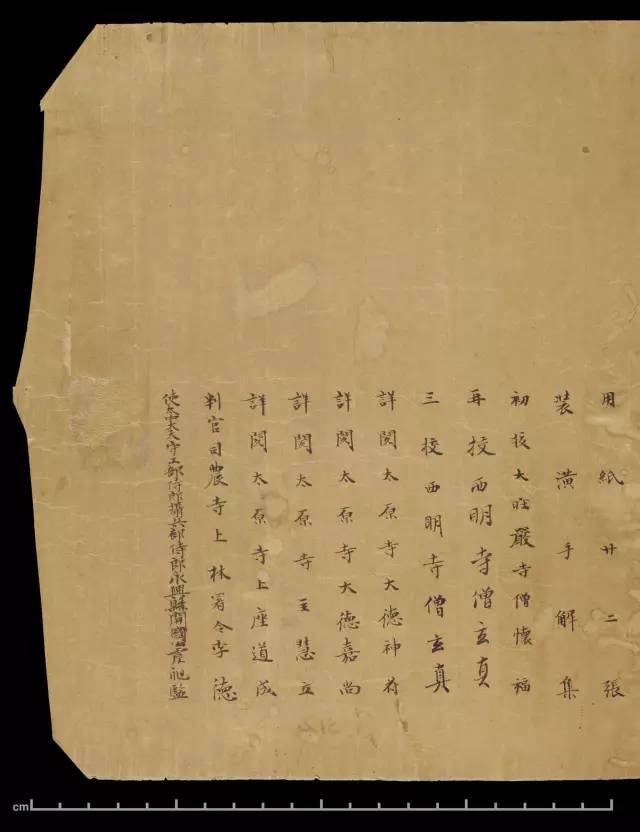 用紙廿二張
裝潢手解集
初校大莊嚴寺僧懷福
再校西明寺僧玄真
三校西明寺僧玄真
詳閱太原寺大德神苻
詳閱太原寺大德嘉尚
詳閱太原寺主慧立
詳閱太原寺上座道成
判官司農寺上林署令李德
使太中大夫守工部侍郎攝兵部侍郎永興縣開國公虞昶監
cm